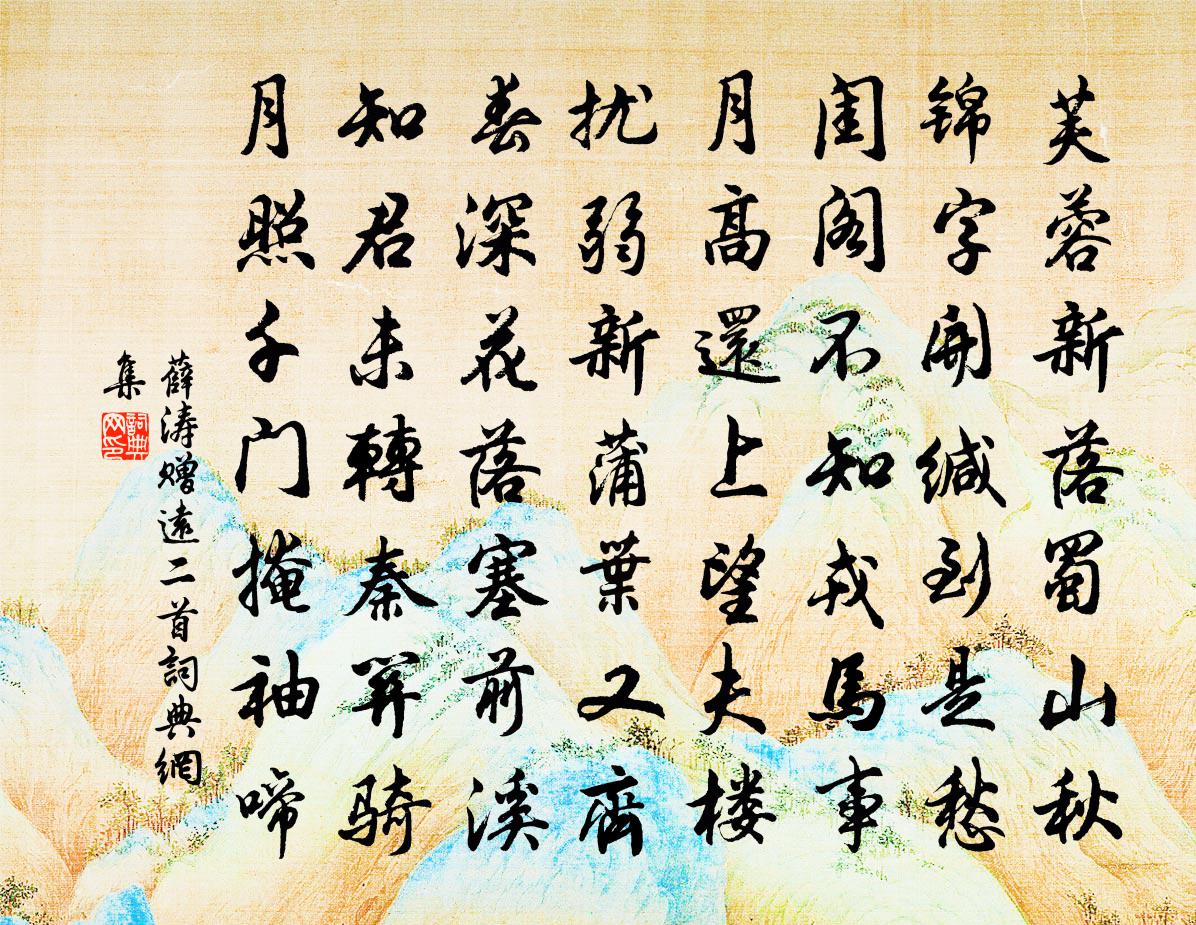 芙蓉新落蜀山秋
锦字開缄到是愁
闺阁不知戎馬事
月高還上望夫楼
扰弱新蒲葉又齊
春深花落塞前溪
知君未轉秦關骑
月照千门掩袖啼
薛涛赠遠二首詞典網
集
詞典网印